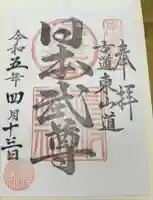 奉拝
古道東山道
日本武尊
令和五年四月十三日